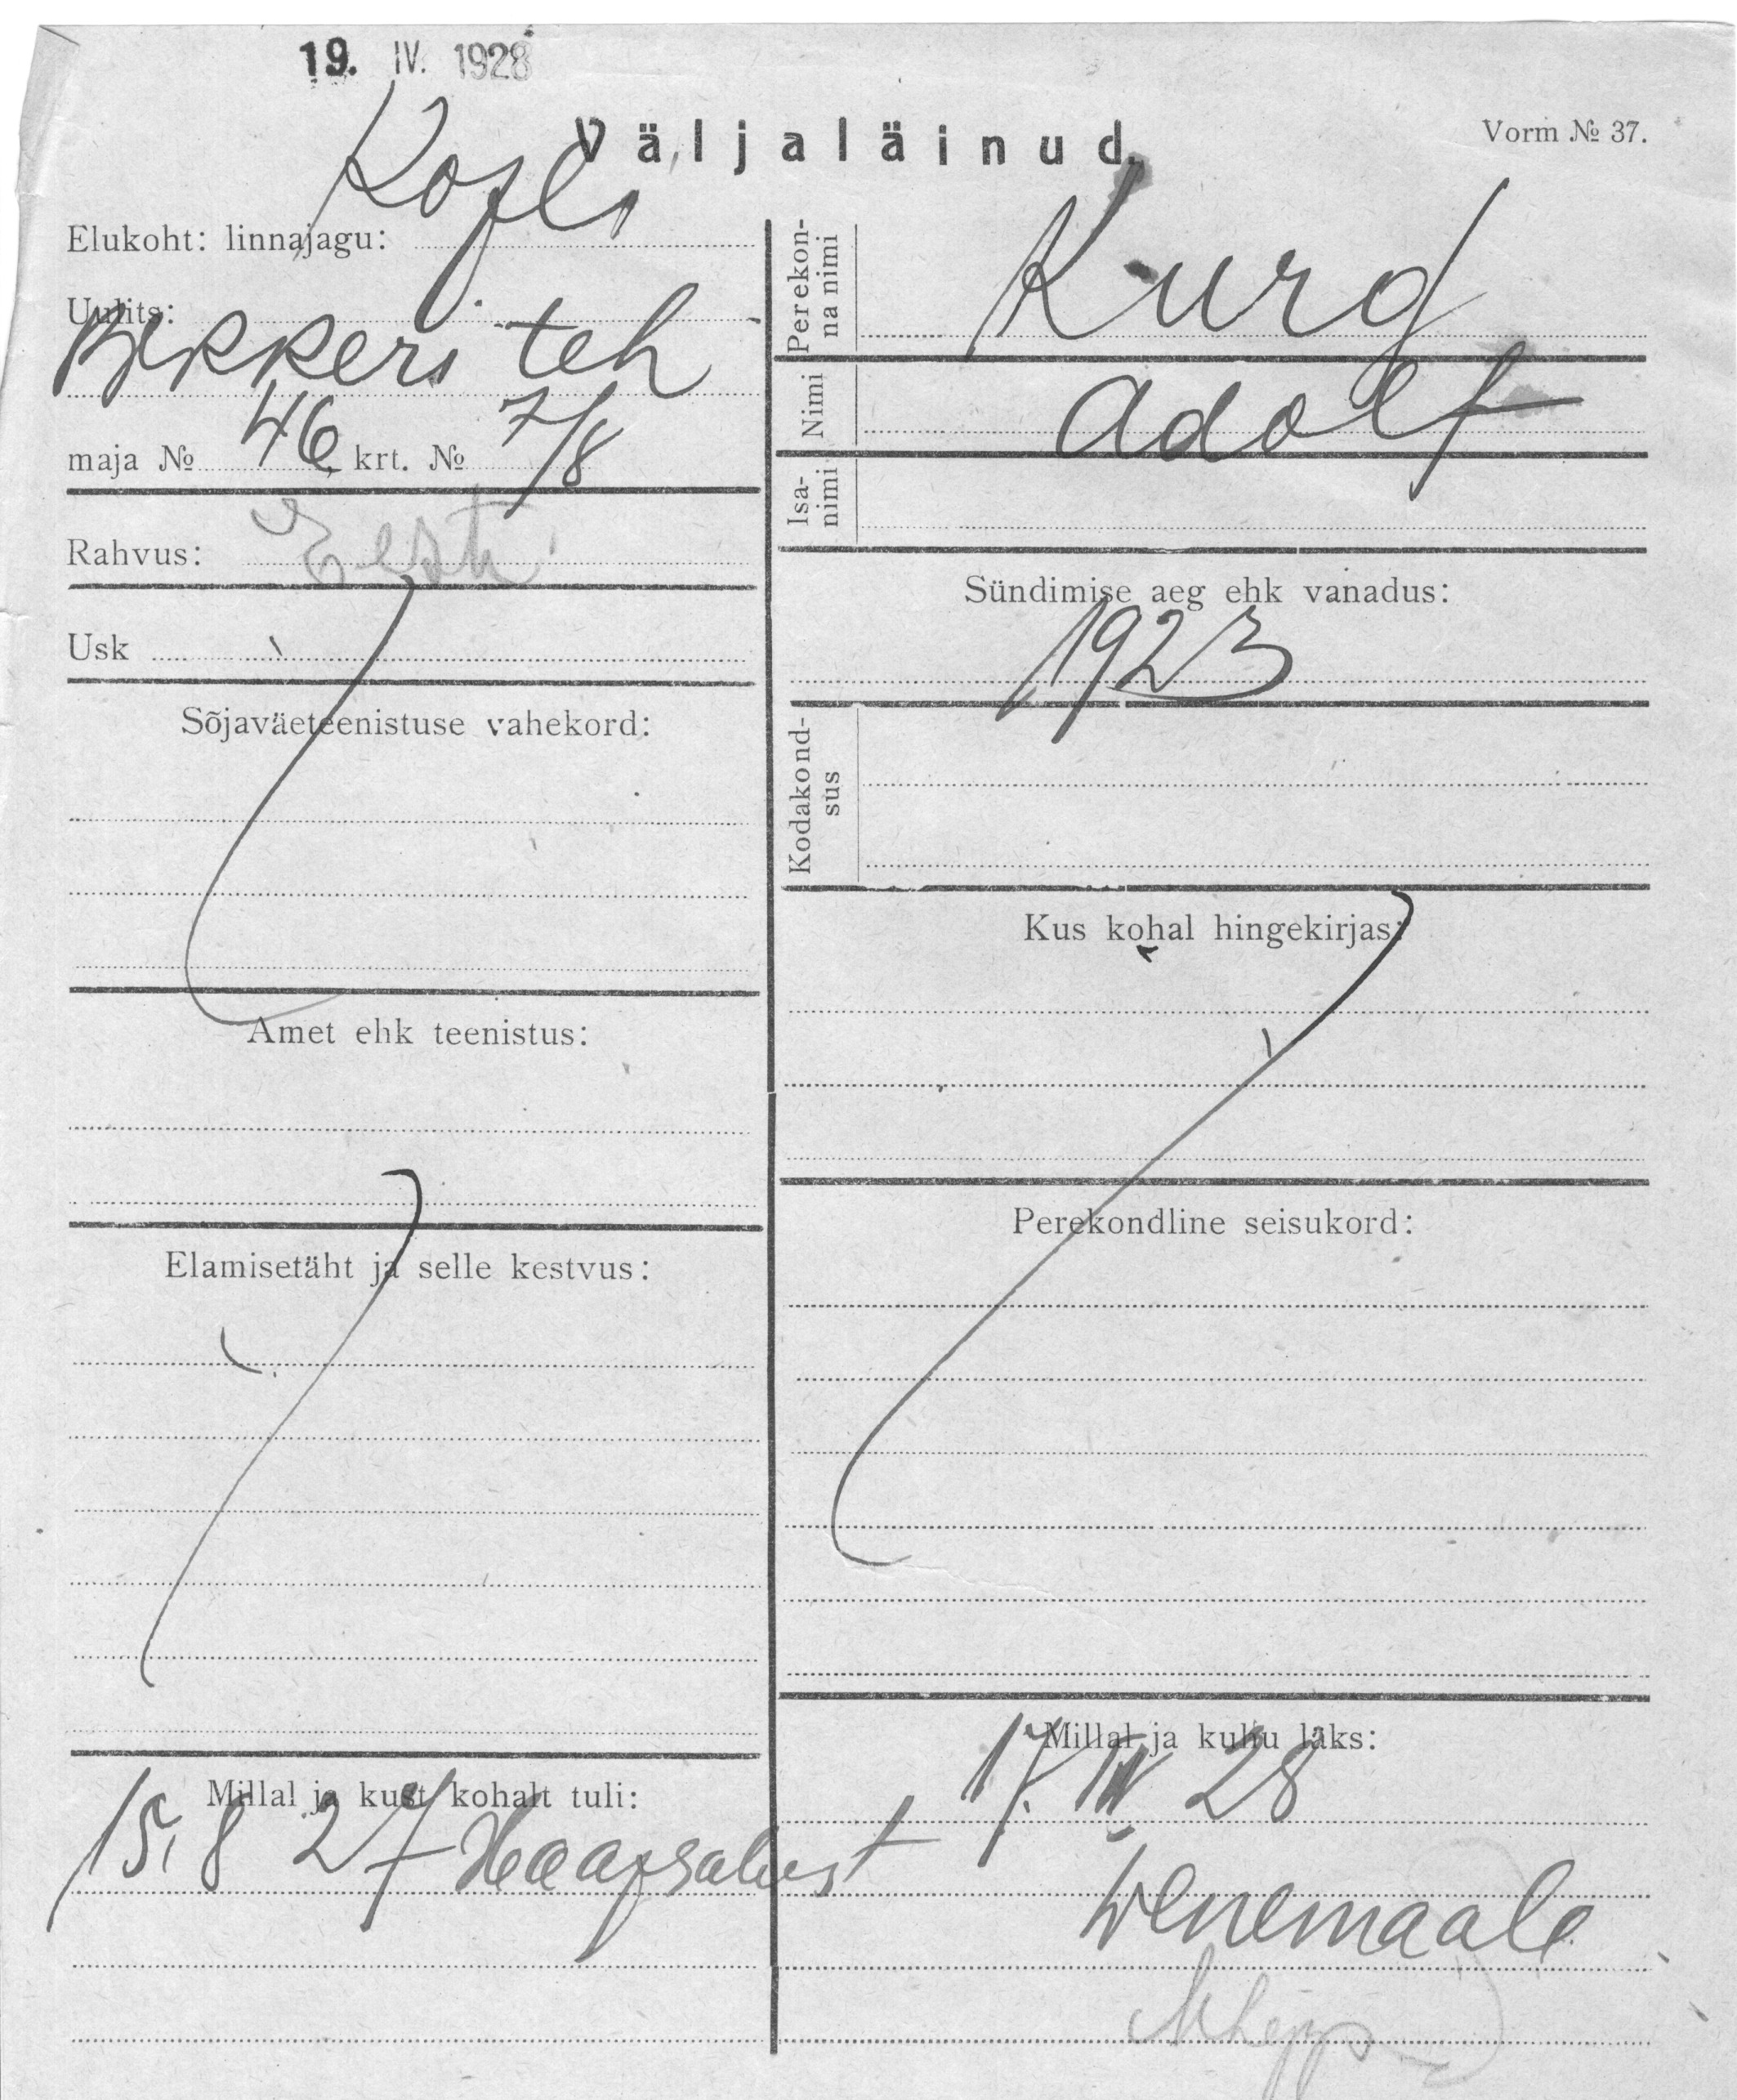 19. IV. 1928
Väljaläinud.
Vorm № 37.
Elukoht: linnajagu: Kopli
Uulits:
Bekkeri teh
maja № 46 krt. № 7/8
Rahvus: Eesti
Usk
Sõjaväeteenistuse vahekord:
Amet ehk teenistus:
Elamisetäht ja selle kestvus:
Millal ja kust kohalt tuli:
15, 8 27 Haapsalust
Perekon-
na nimi
Kurg
Nimi
Adolf
Isa-
nimi
Sündimise aeg ehk vanadus:
1923
Kodakond-
sus
Kus kohal hingekirjas:
Perekondline seisukord:
Millal ja kuhu läks:
17. IV 28
Wenemaale